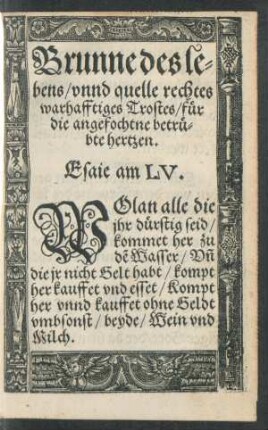 Brunne des le-
bens/vnnd quelle rechtes
warhafftiges Trostes/für
die angefochtne betrü-
bte hertzen.
Esaie am LV.
WOlan alle die
jhr dürstig seid/
kommet her zu
dē Wasser/Vñ
die jr nicht Gelt habt/kompt
her kauffet vnd esset/Kompt
her vnnd kauffet ohne Geldt
vmbsonst/beyde/Wein vnd
Milch.